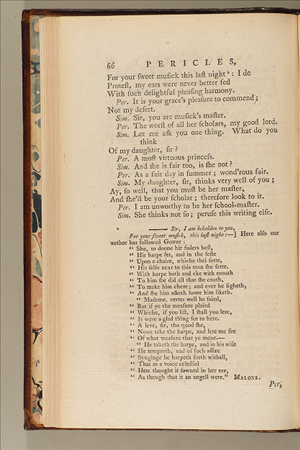 66 PERICLES,
For your ſweet muſick this laſt night*: I do
Proteſt, my ears were never better fed
With ſuch delightful pleaſing harmony.
Per. It is your grace's pleaſure to commend;
Not my deſert.
Sim. Sir, you are muſick's maſter.
Per. The worſt of all her scholars, my good lord.
Sim. Let me aſk you one thing. What do you
think
Of my daughter, ſir?
Per. A moſt virtuous princeſs.
Sim. And ſhe is fair too, is ſhe not?
Per. As a fair day in ſummer; wond'rous fair.
Sim. My daughter, ſir, thinks very well of you;
Ay, ſo well, that you muſt be her maſter,
And ſhe'll be your ſcholar; therefore look to it.
Per. I am unworthy to be her ſchool-maſter.
Sim. She thinks not ſo; peruſe this writing elſe.
* —— Sir, I am beholden to you,
For your ſweet muſick, this laſt night:—] Here alſo our
author has followed Gower:
" She, to doone hir faders heſt,
" Hir harpe fet, and in the feſte
" Upon a chaire, whiche thei fette,
" Hir ſelfe next to this man ſhe ſette.
" With harpe both and eke with mouth
" To him ſhe did all that ſhe couth,
" To make him chere; and ever he ſigheth,
" And ſhe him aſketh howe him liketh.
" Madame, certes well he ſaied,
" But if ye the meaſure plaied
" Whiche, if you liſt, I ſhall you lere,
" It were a glad thing for to here.
" A leve, ſir, tho quod ſhe,
" Nowe take the harpe, and lete me ſee
" Of what meaſure that ye mene.—
" He taketh the harpe, and in his wiſe
" He tempreth, and of ſuch aſſize
" Synginge he harpeth forth withall,
" That as a voice celeſtial
" Hem thought it ſowned in her ere,
" As though that it an angell were." MALONE.
Per.